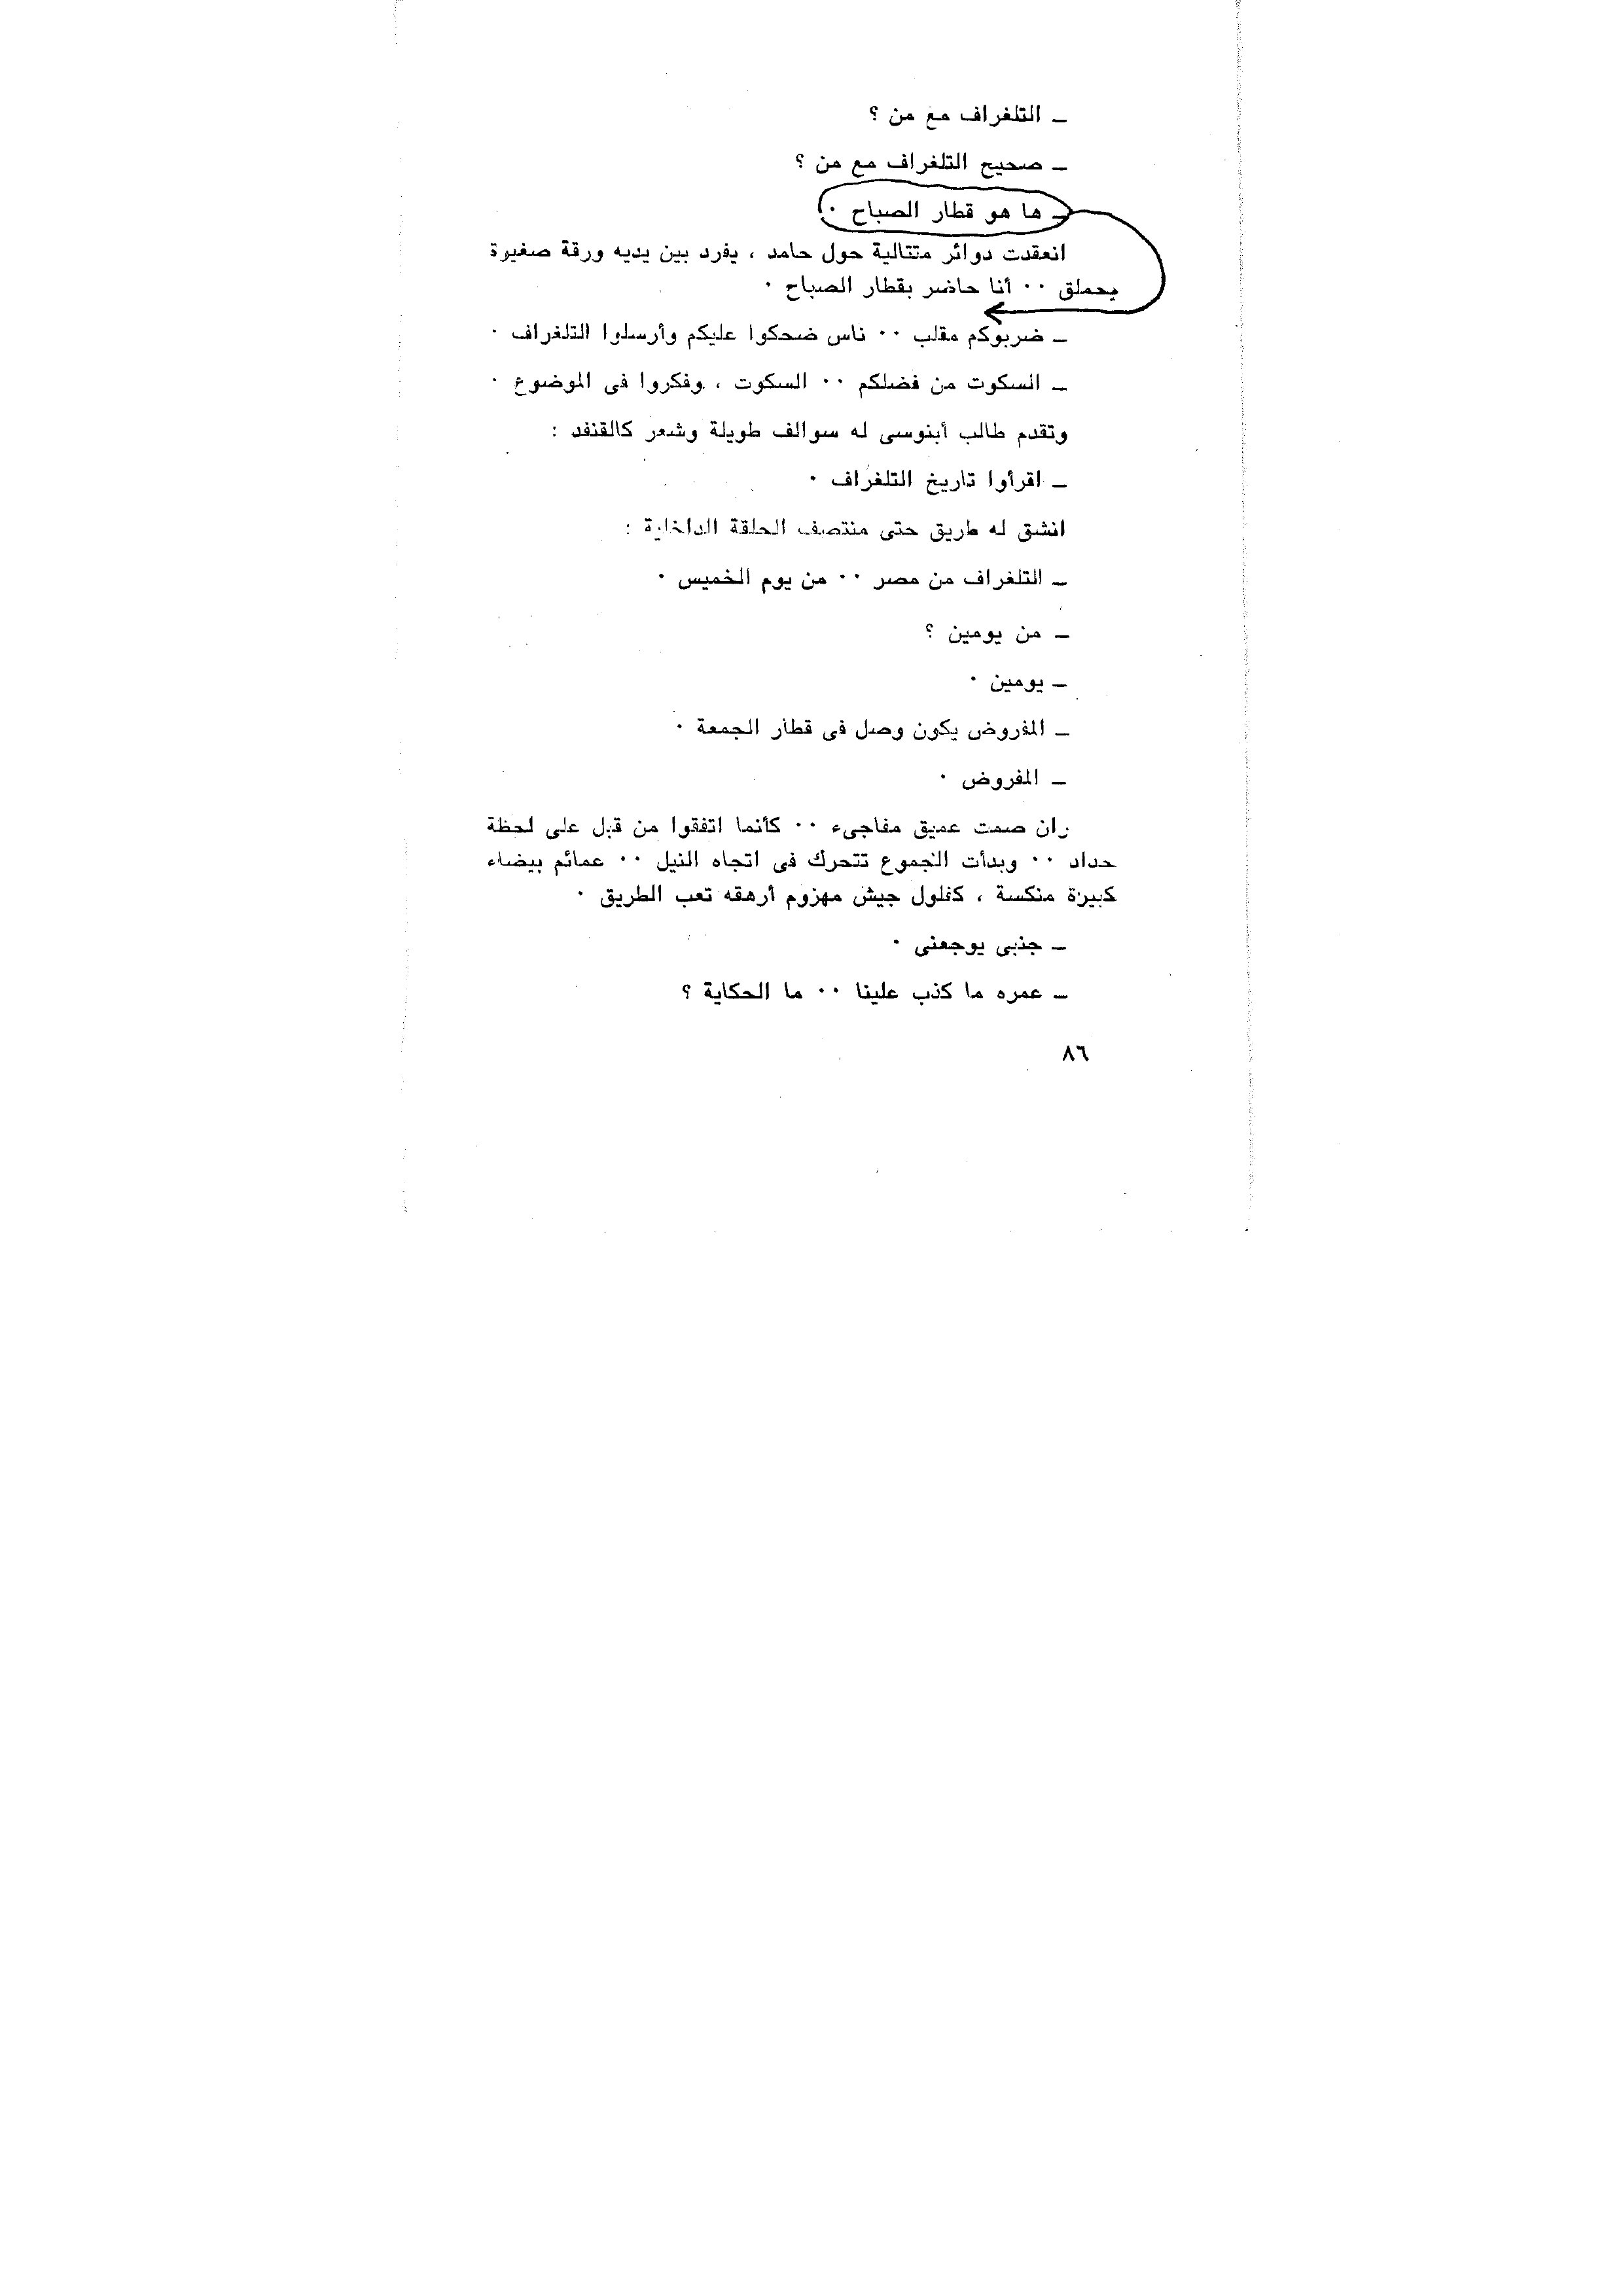 ـ التلغراف مع من ؟
ـ صحيح التلغراف مع من ؟
ـ ها هو قطار الصباح ٠
انعقدت دوائر متتالية حول حامد ، يفرد بين يديه ورقة صغيرة
يحملق ٠٠ أنا حاضر بقطار الصباح ٠
ـ ضربوكم مقلب ٠٠ ناس ضحكوا عليكم وأرسلوا التلغراف ٠
ـ السكوت من فضلكم ٠٠ السكوت ، وفكروا فى الموضوع ٠
وتقدم طالب أبنوسى له سوالف طويلة وشعر كالقنفد :
ـ اقرأوا تاريخ التلغراف ٠
انشق له طريق حتى منتصف الحلقة الداخلية :
ـ التلغراف من مصر ٠٠ من يوم الخميس ٠
ـ من يومين ؟
ـ يومين ٠
ـ المفروض يكون وصل فى قطار الجمعة ٠
ـ المفروض ٠
ران صمت عميق مفاجىء ٠٠ كأنما اتفقوا من قبل على لحظة
حداد ٠٠ وبدأت الجموع تتحرك فى اتجاه النيل ٠٠ عمائم بيضاء
كبيرة منكسة ، كفلول جيش مهزوم أرهقه تعب الطريق ٠
ـ جنبى يوجعنى ٠
ـ عمره ما كذب علينا ٠٠ ما الحكاية ؟
٨٦